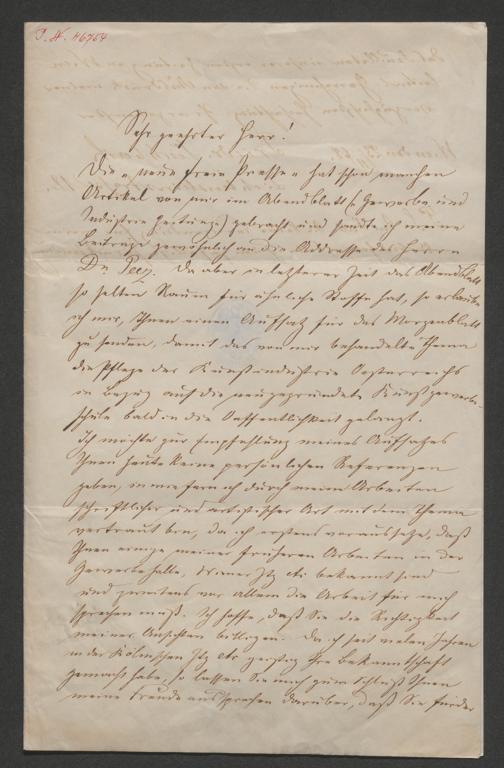 J. N. 46754
Sehr geehrter Herr!
Die „neue freie Presse“ hat schon manchen
Artikel von mir im Abendblatt (Gewerbe und
Industrie Zeitung) gebracht und sandte ich meine
Beiträge gewöhnlich an die Addresse des Herrn
Dr. Peez. Da aber in letzterer Zeit das Abendblatt
so selten Raum für ähnliche Stoffe hat, so erlaube
ich mir, Ihnen einen Aufsatz für das Morgenblatt
zu senden, damit das von mir behandelte Thema
die Pflege der Kunstindustrie Oesterreichs
in Bezug auf die neugegründete Kunstgewerbe-
schule bald in die Oeffentlichkeit gelangt.
Ich möchte zur Empfehlung meines Aufsatzes
Ihnen heute keine persönlichen Referenzen
geben, in wie fern ich durch meine Arbeiten
schriftlicher und artistischer Art mit dem Thema
vertraut bin, da ich erstens voraussetze, daß
Ihnen einige meiner früheren Arbeiten in der
Gewerbehalle, Wiener Ztg etc bekannt sind
und zweitens vor allem die Arbeit für mich
sprechen muß. Ich hoffe, daß Sie die Richtigkeit
meiner Ansichten billigen. Da ich seit vielen Jahren
in der Kölnischen Ztg etc geistig Ihre Bekanntschaft
gemacht habe, so lassen Sie mich zum Schluß Ihnen
meine Freude aussprechen darüber, daß Sie